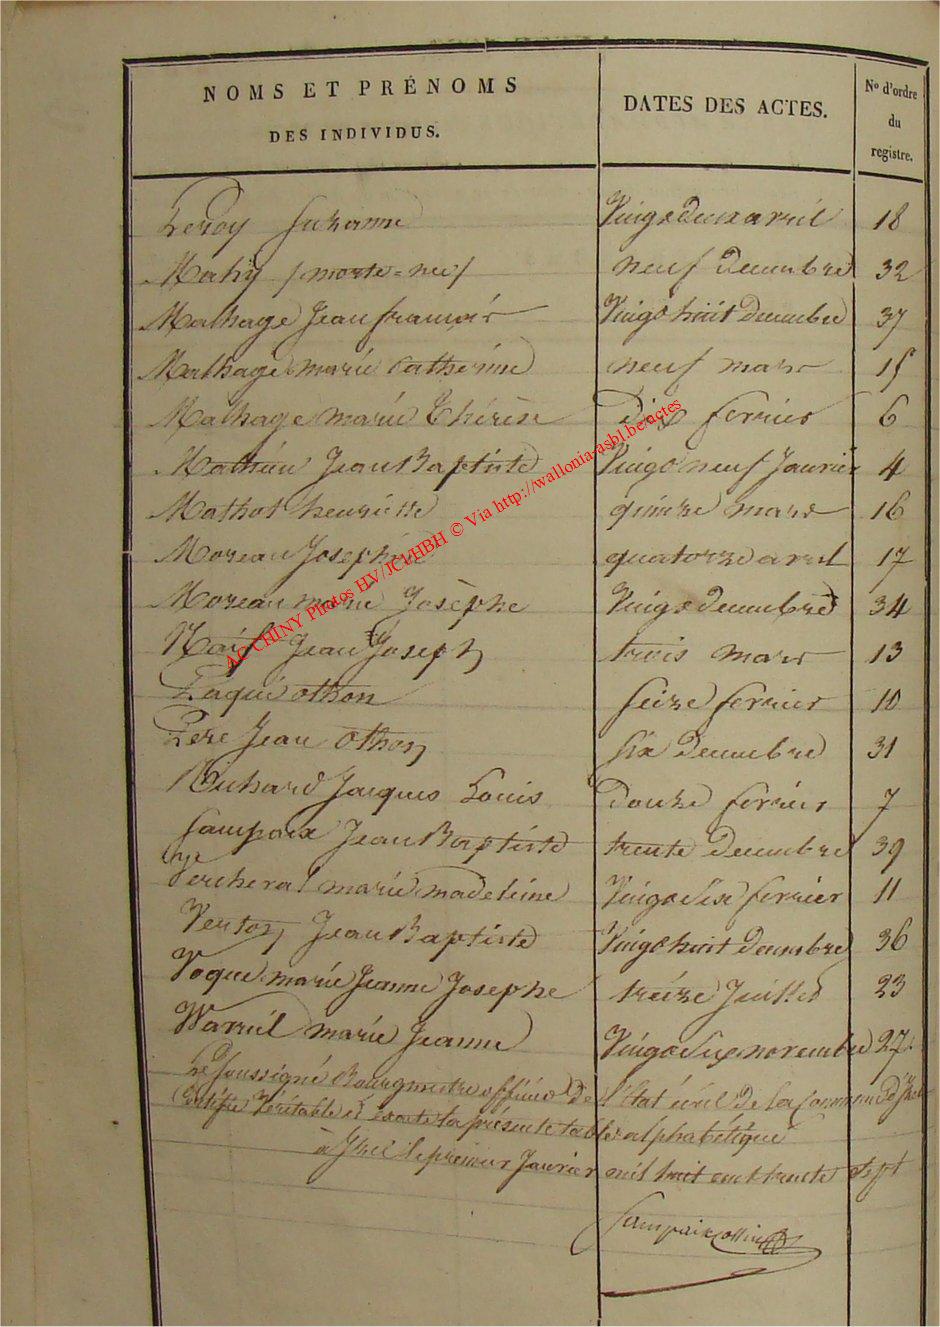 NOMS ET PRÉNOMS
DES INDIVIDUS.
DATES DES ACTES.
No d'ordre
du
registre.
Leroy Suzanne Vingt deux avril 18
Mahy / morte-né / neuf decembre 32
Malhage Jean françois Vingt huit decembre 37
Malhage marie Catherine neuf mars 15
Malhage marie Thérèse Dix fevrier 6
Mathieu Jean Baptiste Vingt neuf Janvier 4
Mathot henriette quinze mars 16
Moreau Joseph quatorze avril 17
Moreau marie Josèphe Vingt decembre 34
Naif Jean Joseph trois mars 13
Paqui othon seize fevrier 10
Pere Jean Othon six decembre 31
Richard Jacques Louis douze fevrier 7
Sampaix Jean Baptiste trente decembre 39
Vercheval marie madeleine Vingt six fevrier 11
Verton Jean Baptiste Vingt huit decembre 36
Voque marie Jeanne Josephe treize Juillet 23
Marie Jeanne Vingt sept novembre 27
Le Soussigné Bourgmestre officier De l'Etat civil De la Commune D'Izel
Certifie Véritable et exacte la présente table alphabetique
à Izel le premier Janvier mil huit cent trente sept
Sampaix Collin
AC CHINY Photos HV/JCVHBH © Via http://wallonia-asbl.be/actes